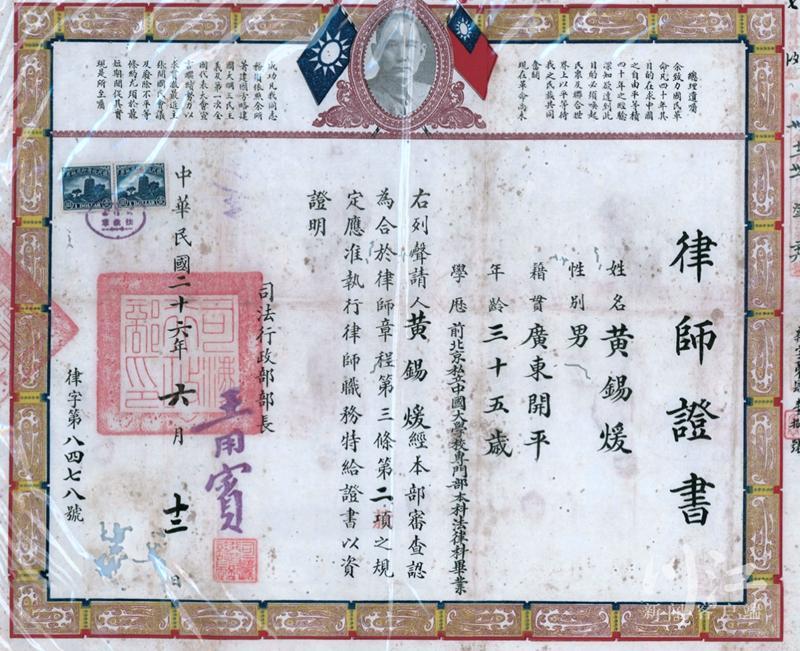 總理遺囑
余致力國民革
命凡四十年其
目的在求中國
之自由平等積
四十年之經驗
深知欲達到此
目的必須喚起
民眾及聯合世
界上以平等待
我之民族共同
奮鬥
現在革命尚未
成功凡我同志
務須依照余所
著建國方略建
國大綱三民主
義及第一次全
國代表大會宣
言繼續努力以
求貫徹最近主
張開國民會議
及廢除不平等
條約尤須於最
短期間促其實
現是所至囑
律師證書
姓名 黃錫煖
性別 男
籍貫 廣東開平
年齡 三十五歲
學歷 前北京私立中國大學校專門部本科法律科畢業
右列聲請人黃錫煖經本部審查認
為合於律師章程第三條第二項之規
定應准執行律師職務特給證書以資
證明
司法行政部部長
王用賓
中華民國二十六年六月十三日
律字第八四七八號
1 DOLLAR 1 DOLLAR
司法行政部印
新聞客户端